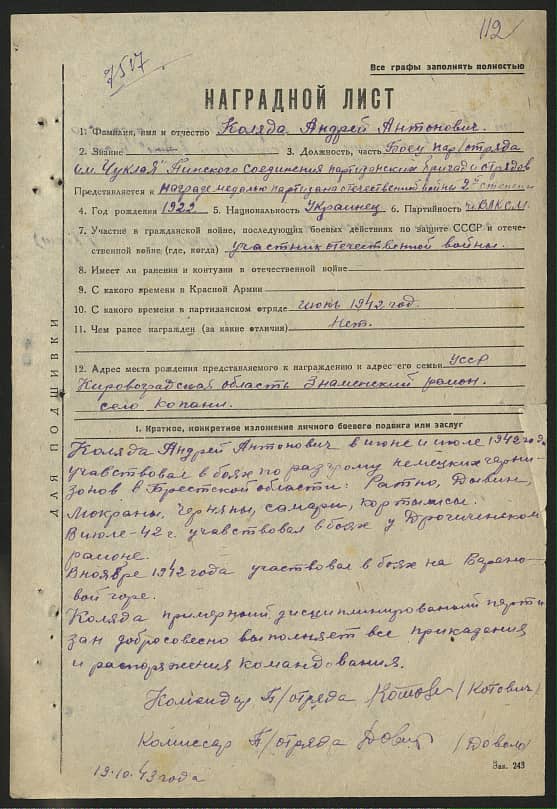 112
7517
Все графы заполнять полностью
НАГРАДНОЙ ЛИСТ
1. Фамилия, имя и отчество Коляда Андрей Антонович.
2. Звание 3. Должность, часть Боец пар/отряда
им. Чуклая" Пинского Соединения партизанских бригад и отрядов
Представляется к награде медалью партизана отечественной войны 2й степени
4. Год рождения 1922 5. Национальность Украинец 6. Партийность чл. ВЛКСМ
7. Участие в гражданской войне, последующих боевых действиях по защите СССР и отече-
ственной войне (где, когда) участник отечественной войны.
8. Имеет ли ранения и контузии в отечественной войне
9. С какого времени в Красной Армии
10. С какого времени в партизанском отряде июнь 1942 год.
11. Чем ранее награжден (за какие отличия) Нет.
12. Адрес места рождения представляемого к награждению и адрес его семьи УССР
Кировоградская область Знаменский район.
село Копани.
ДЛЯ ПОДШИВКИ
I. Краткое, конкретное изложение личного боевого подвига или заслуг
Коляда Андрей Антонович в июне и июле 1942 года
учавствовал в боях по разгрому немецких гарни-
зонов в Брестской области: Ратно, Дывин,
Мокраны, Черняны, самары, кортылисы.
В июле-42 г. учавствовал в боях у Дрогиченском
районе.
В ноябре 1942 года участвовал в боях на
вой горе.
Коляда примерный дисциплинированый парти
зан добросовесно выполняет все прикадания
и распоряжения командования.
Командир П/отряда (Котович)
Комиссар П/отряда
19.10.43 года
Зак. 243